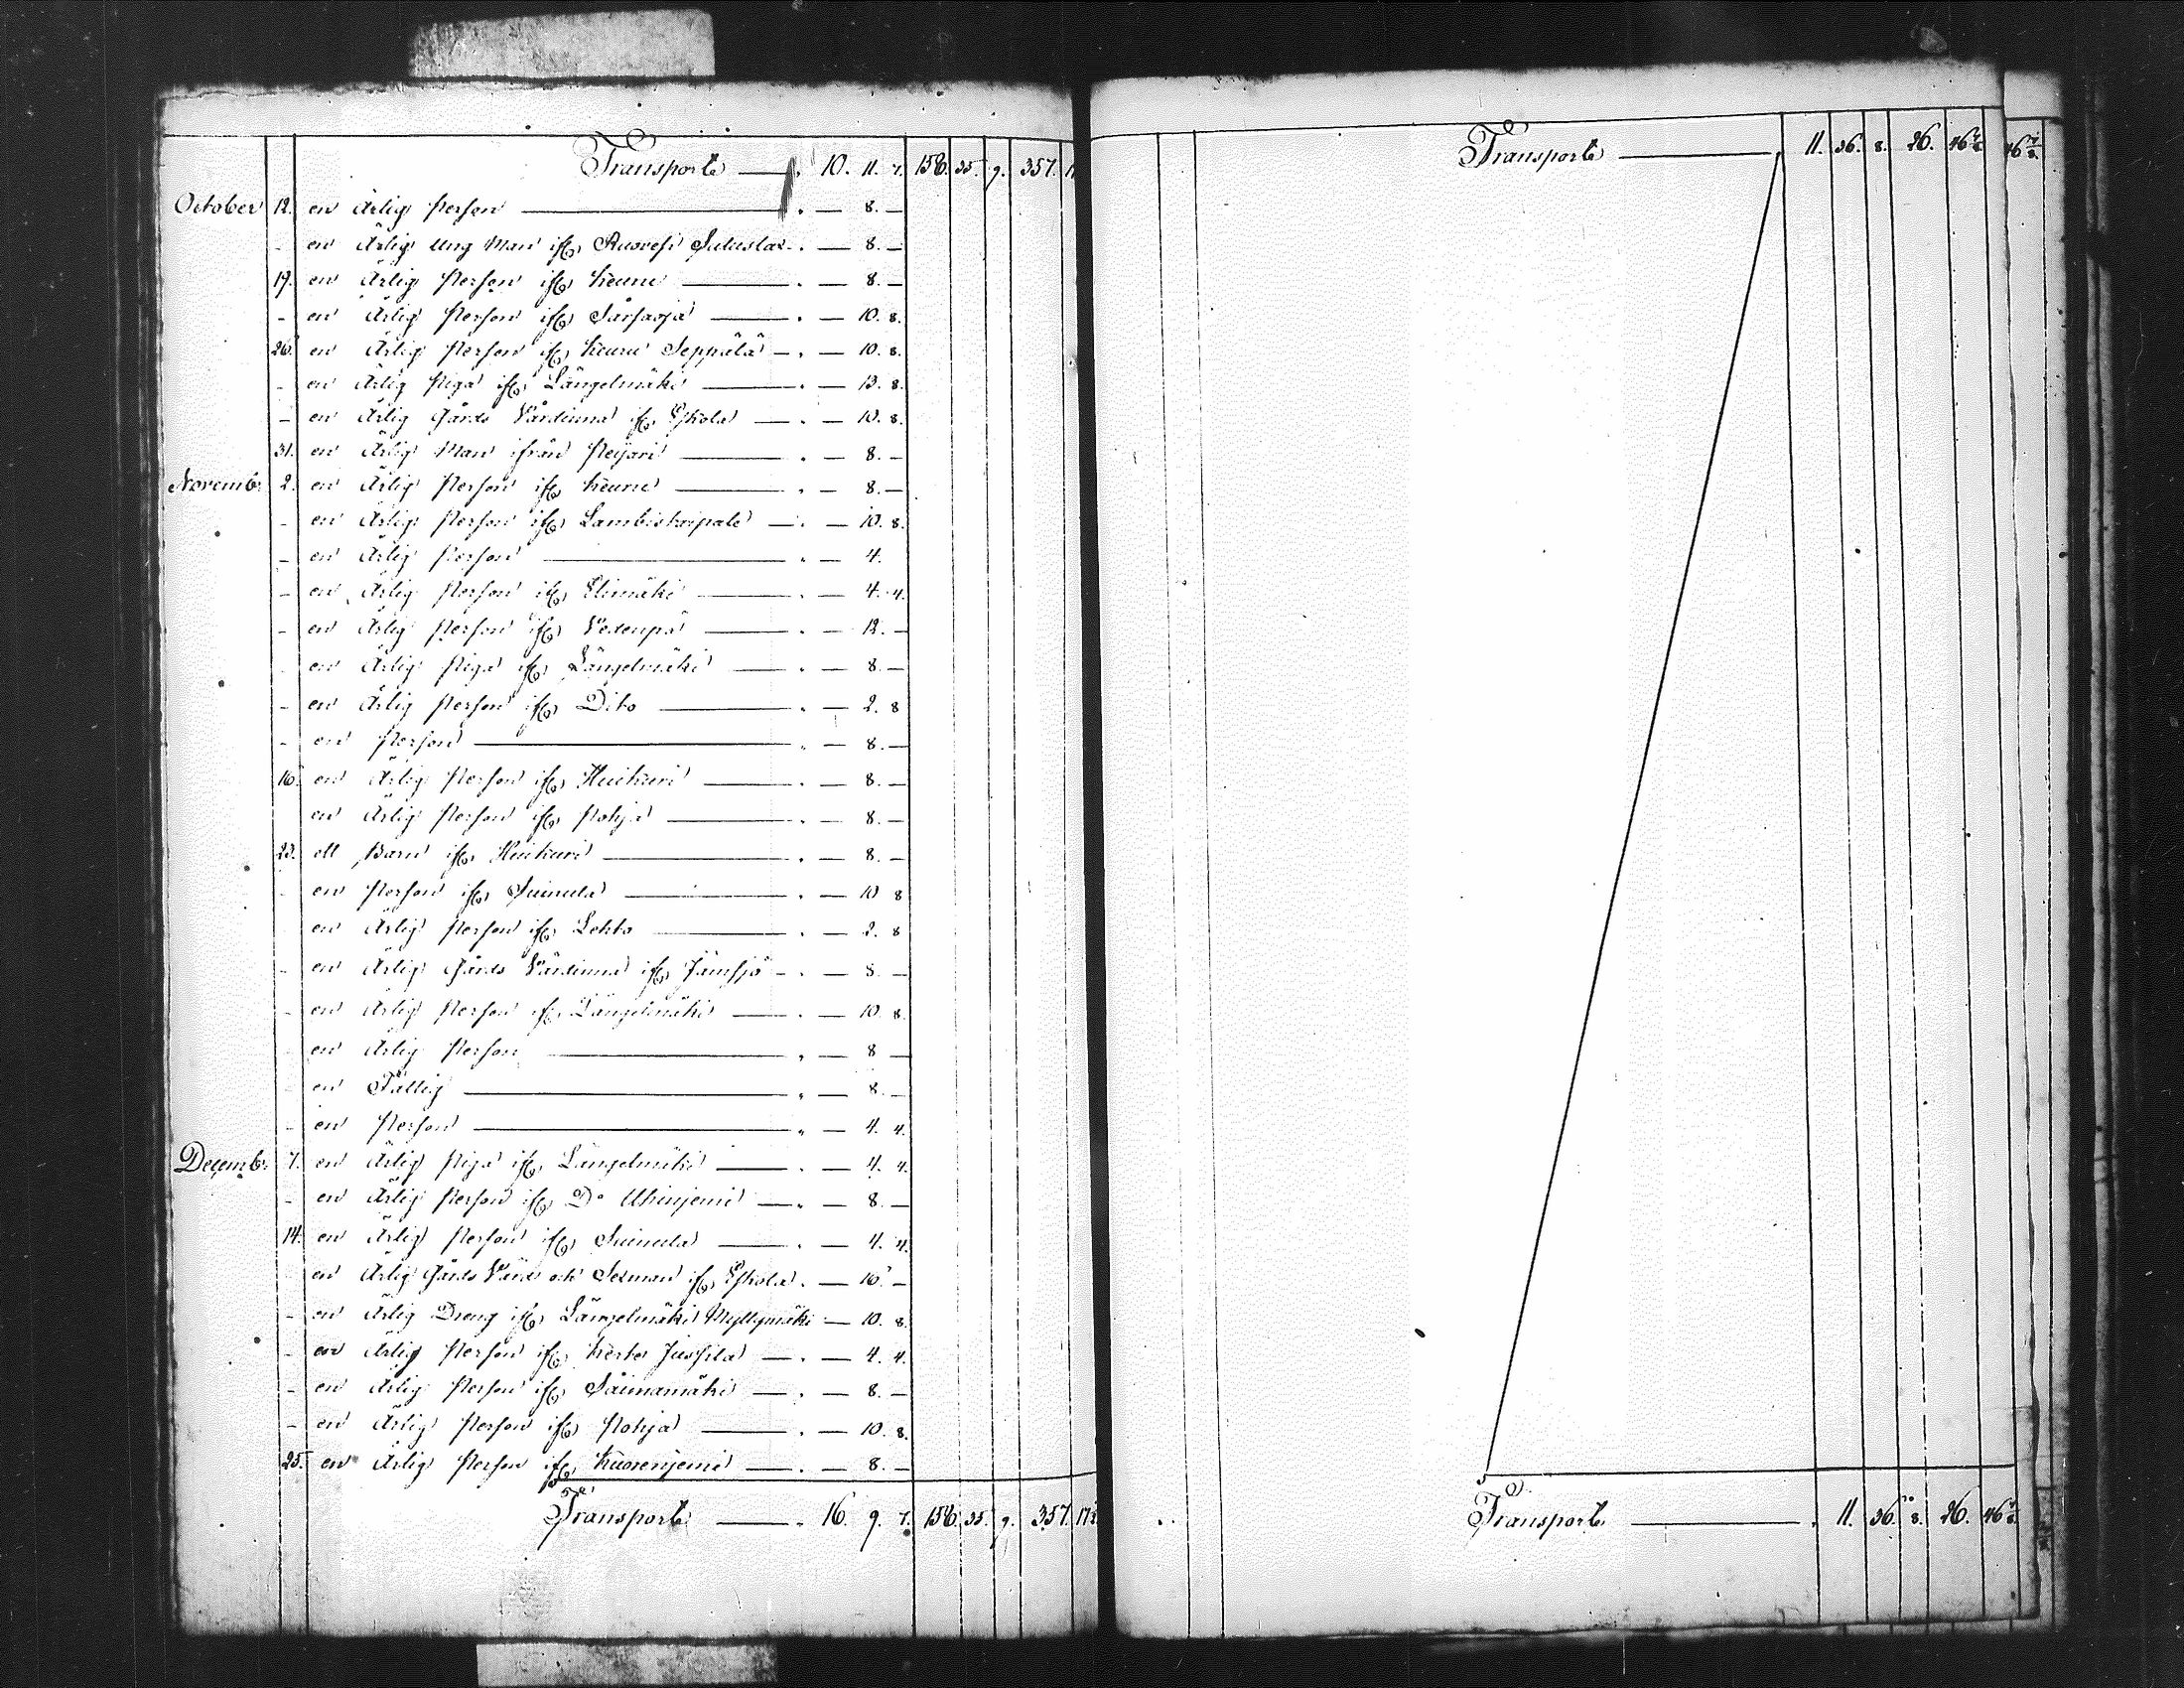 Transport — . 10. 11. 7. 158. 35. 9. 357. 17
October 12. en Ärlig Person — . — 8. —
- en Ärlig Ung Man ifrån Ruovesi — 8. —
19. en Ärlig Person ifrån Keuru — . — 8. —
- en Ärlig Person ifrån — . — 10. 8.
26. en Ärlig Person ifrån Keuru Seppälä — . — 10. 8.
- en Ärlig Piga ifrån Längelmäki — . — 13. 8.
- en Ärlig Gårds Värdinna ifrån Eskola — . — 10. 8.
31. en Ärlig Man ifrån Peijari — . — 8. —
Novembr 2. en Ärlig Person ifrån Keuru — . — 8. —
- en Ärlig Person ifrån — . — 10. 8.
- en Ärlig Person — . — 4.
- en Ärlig Person ifrån Elimäki — . — 4. 4.
- en Ärlig Person ifrån Vedenpä — . — 12. —
- en Ärlig Piga ifrån Längelmäki — . — 8. —
- en Ärlig Person ifrån Dito — . — 2. 8
- en Person — . — 8. —
16. en Ärlig Person ifrån Huikuri — . — 8. —
en Ärlig Person ifrån Pohja — . — 8. —
23. ett Barn ifrån Huikuri — . — 8. —
- en Person ifrån Suinula — . — 10 8
en Ärlig Person ifrån Lehto — . — 2. 8
- en Ärlig Gårds Värdinna ifrån Jämsjö — . — 8. —
- en Ärlig Person ifrån Längelmäki — . — 10. 8.
- en Ärlig Person — . — 8 —
- en Fattig — . — 8. —
- en Person — . — 4. 4.
Decembr 7. en Ärlig Piga ifrån Längelmäki — . — 4. 4.
- en Ärlig Person ifrån Do Uhinjemi — . — 8. —
14. en Ärlig Person ifrån Suinula — . — 4. 4.
- en Ärlig Gårds Värd och Sexman ifrån Eskola . — 16. —
- en Ärlig Dreng ifrån Längelmäki Myllymäki — 10. 8.
- en Ärlig Person ifrån Jussila — . — 4. 4.
- en Ärlig Person ifrån — . — 8. —
- en Ärlig Person ifrån Pohja — . — 10. 8.
25. en Ärlig Person ifrån Kuorenjemi — . — 8. —
Transport — . 16. 9. 7. 158. 35. 9. 357. 17
Transport — 11. 36. 8. 26. 46
Transport — . 11. 36. 8. 26. 46